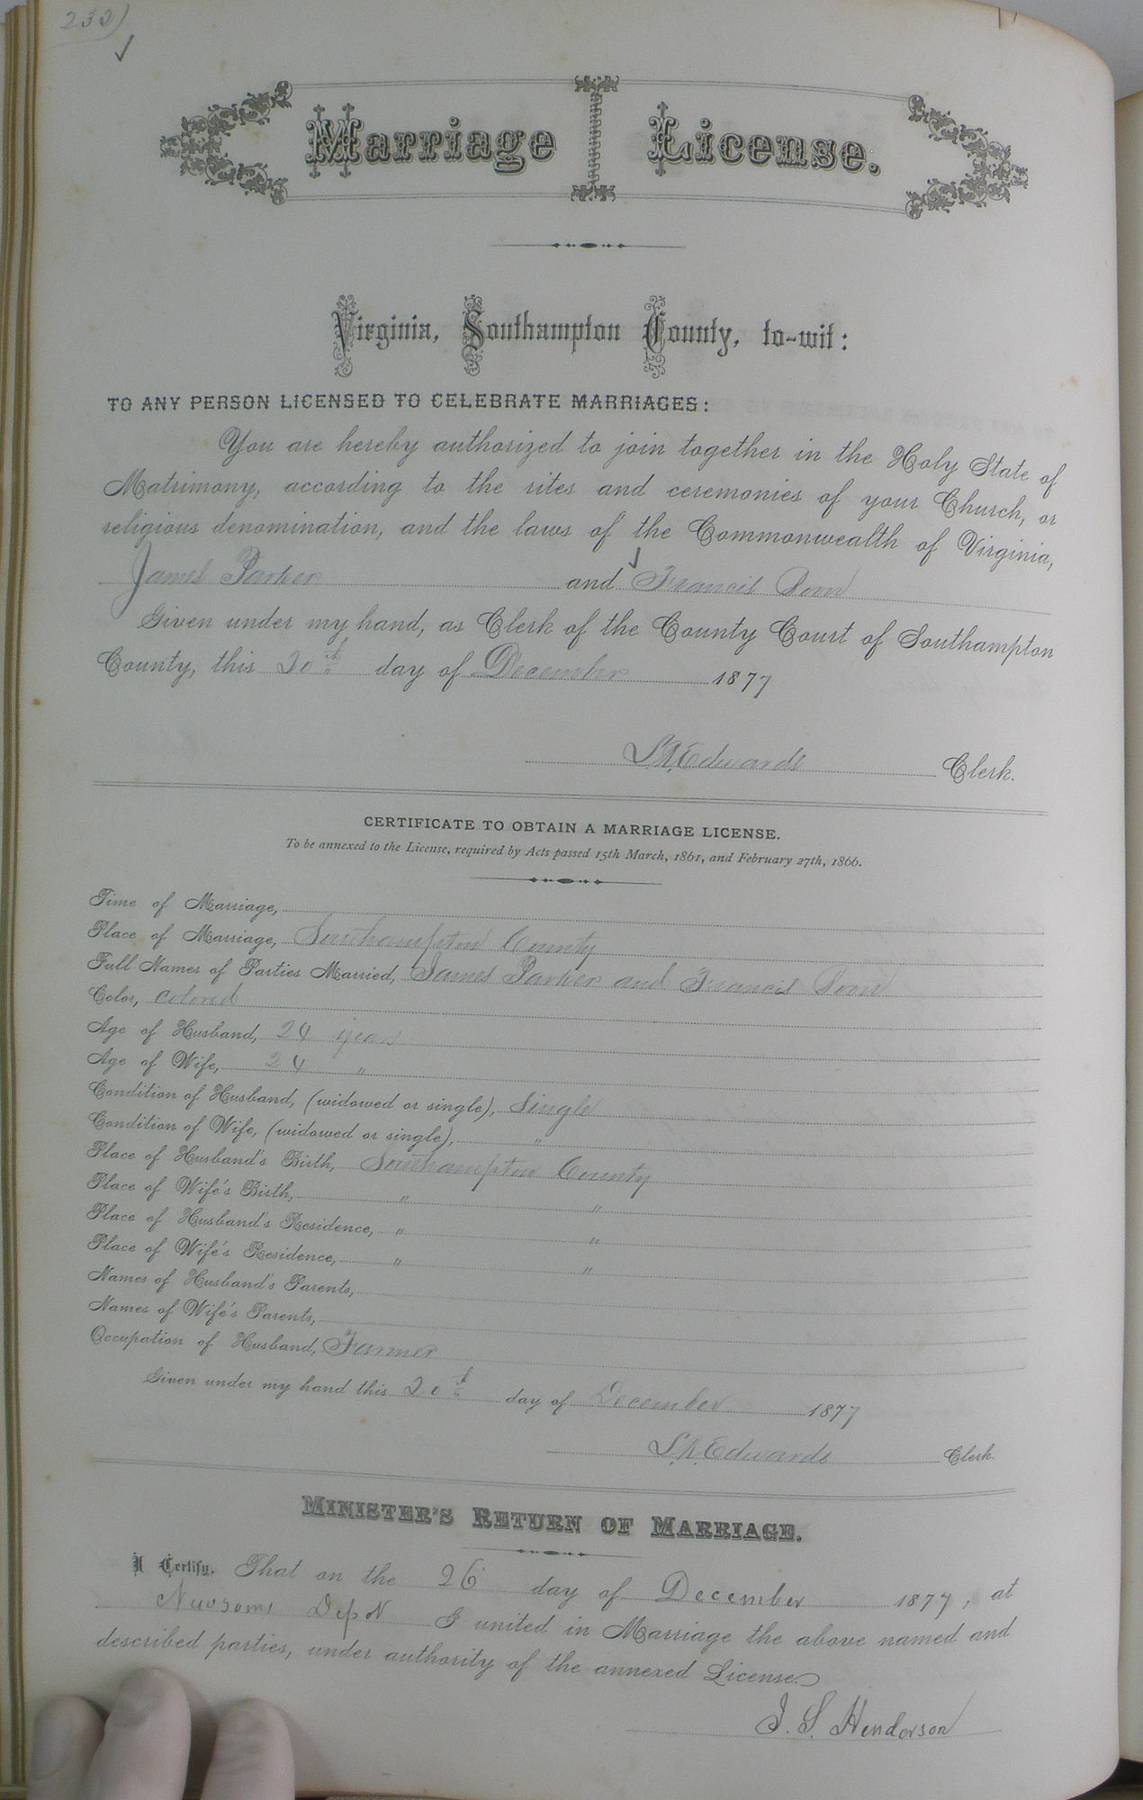 232)
Marriage License.
Virginia, Southampton County, to-wit:
TO ANY PERSON LICENSED TO CELEBRATE MARRIAGES:
You are hereby authorized to join together in the Holy State of
Matrimony, according to the rites and ceremonies of your Church, or
religious denomination, and the laws of the Commonwealth of Virginia,
James Parker and Francis
Given under my hand, as Clerk of the County Court of Southampton
County, this 20th day of December 1877
Edwards Clerk.
CERTIFICATE TO OBTAIN A MARRIAGE LICENSE.
To be annexed to the License, required by Acts passed 15th March, 1861, and February 27th, 1866.
Time of Marriage,
Place of Marriage, Southampton County
Full Names of Parties Married, James Parker and Francis
Color, colored
Age of Husband, 24 years
Age of Wife, 24 "
Condition of Husband, (widowed or single), Single
Condition of Wife, (widowed or single), "
Place of Husband's Birth, Southampton County
Place of Wife's Birth, " "
Place of Husband's Residence, " "
Place of Wife's Residence, " "
Names of Husband's Parents,
Names of Wife's Parents,
Occupation of Husband, Farmer
Given under my hand this 20th day of December 1877
Edwards Clerk.
MINISTER'S RETURN OF MARRIAGE.
I Certify, That on the 26 day of December 1877, at
Newsoms I united in Marriage the above named and
described parties, under authority of the annexed License.
J. S. Henderson